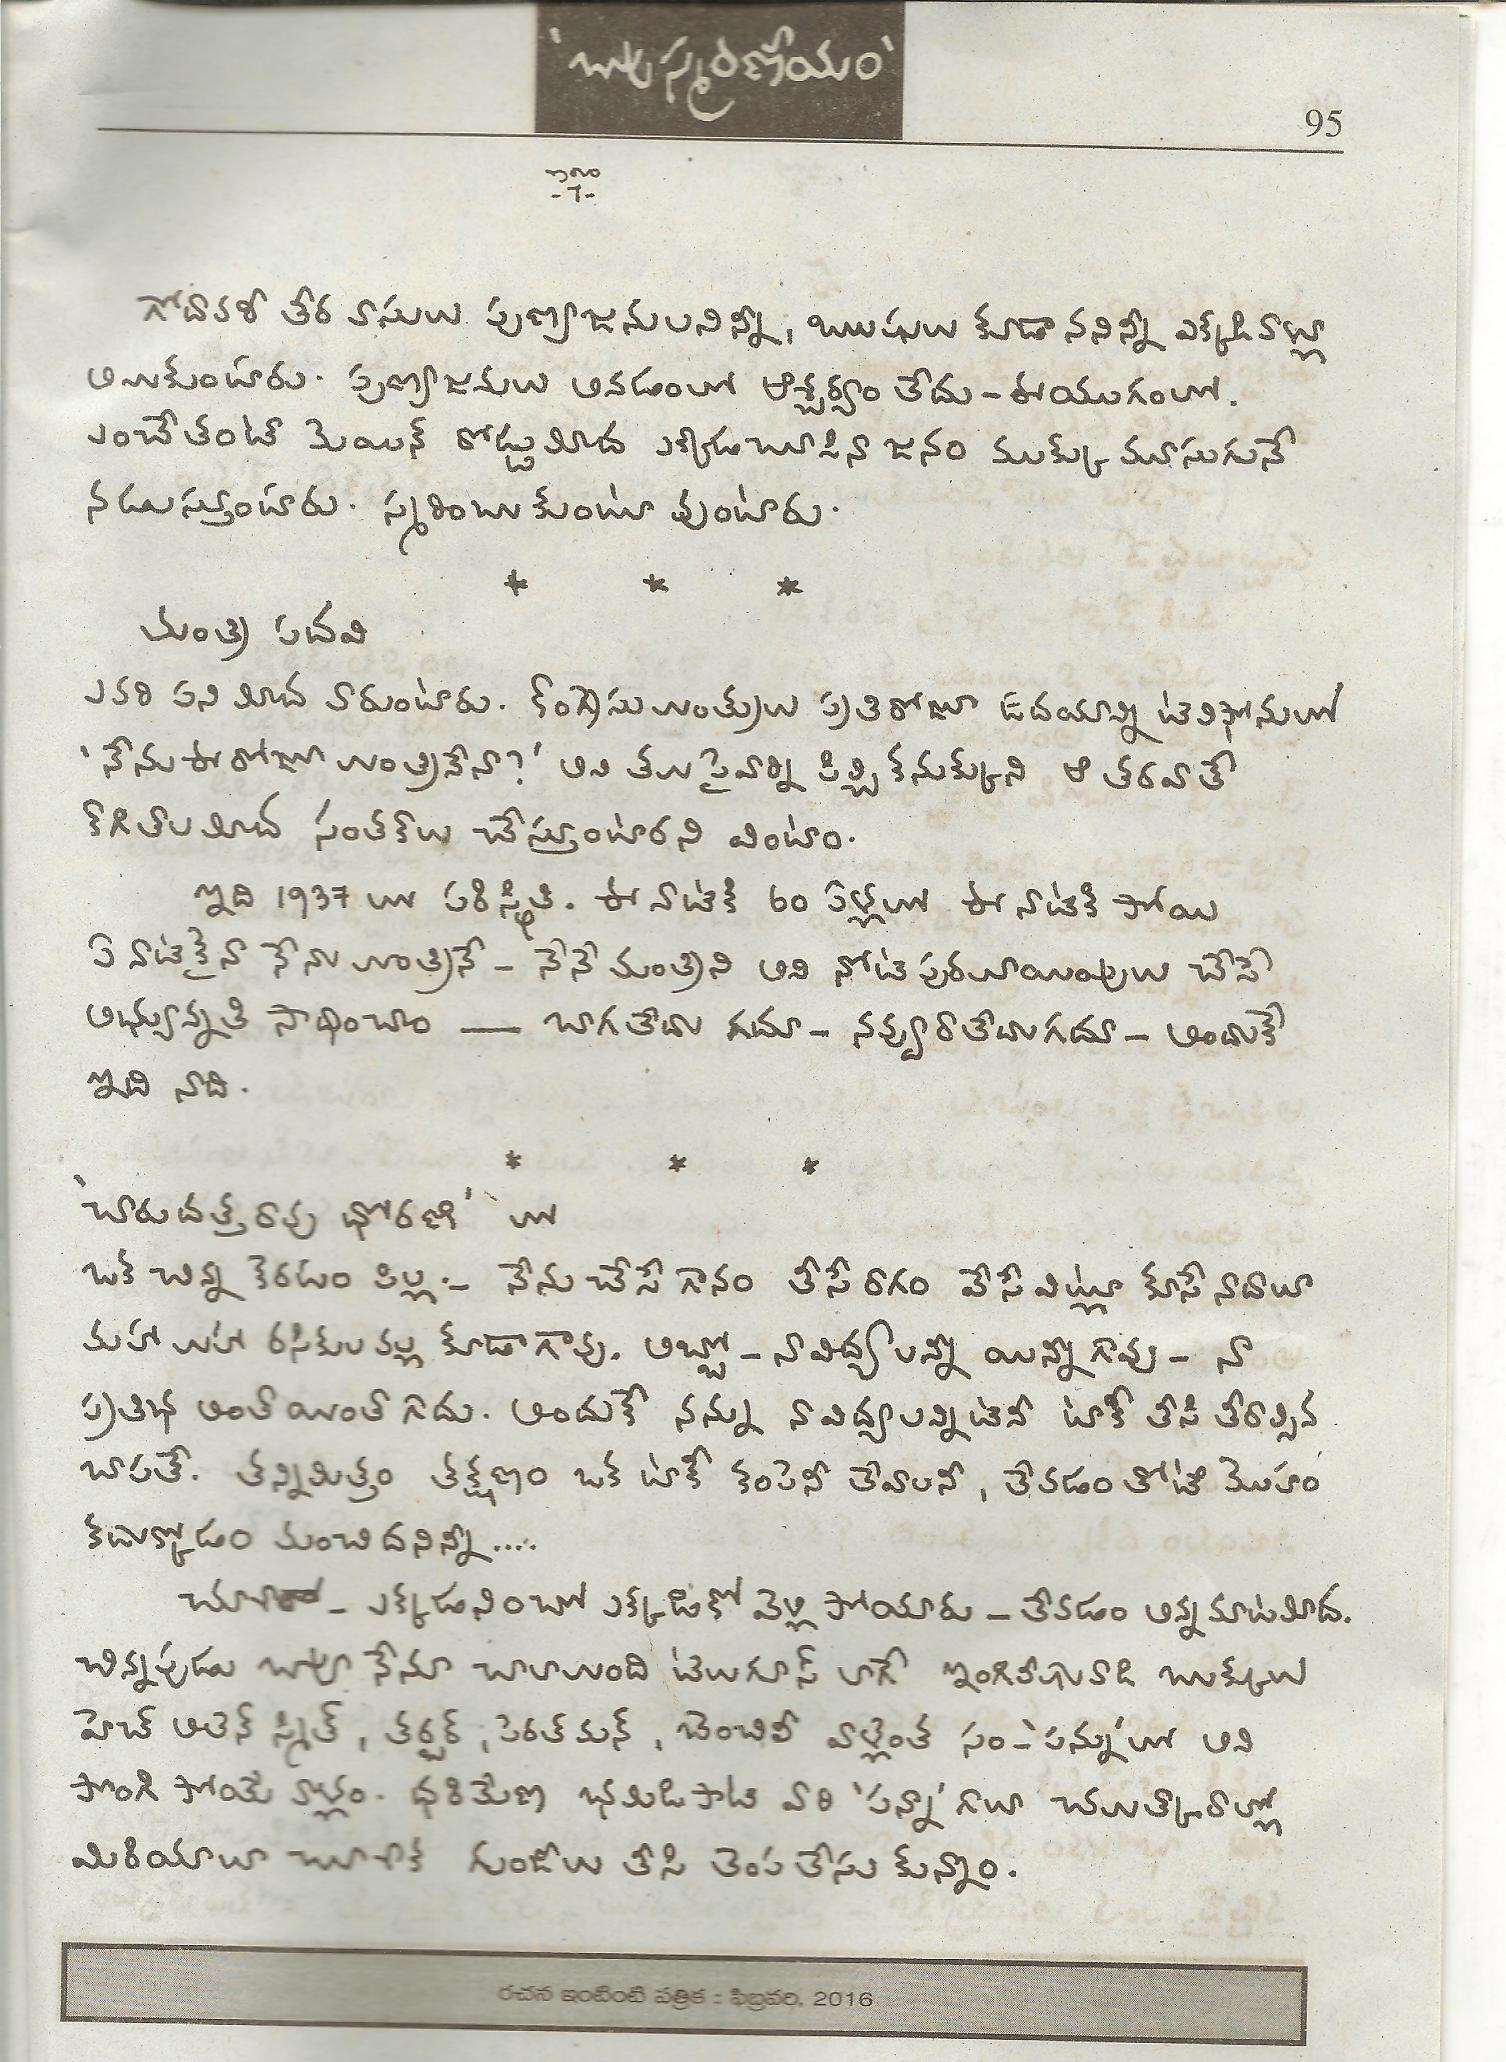 'బాపు స్మరణీయం'
95
-7-
గోదావరి తీర వాసులు పుణ్యజనులనిన్నీ, ఋషులు కూడాననిన్నీ ఎక్కడివాళ్లూ
అనుకుంటారు. పుణ్యజనులు అనడంలో ఆశ్చర్యం లేదు - ఈయుగంలో.
ఎంచేతంటే మెయిన్ రోడ్డుమీద ఎక్కడచూసినా జనం ముక్కు మూసుగునే
నడుస్తూంటారు. స్మరించుకుంటూ వుంటారు.
* * *
మంత్రి పదవి
ఎవరి పని మీద వారుంటారు. కాంగ్రెసుమంత్రులు ప్రతిరోజూ ఉదయాన్నే టెలిఫోనులో
'నేను ఈ రోజూ మంత్రినేనా?' అని తమ పైవారిని పిల్చి కనుక్కుని ఆ తరవాతే
కాగితాలమీద సంతకాలు చేస్తూంటారని వింటాం.
ఇది 1937 లో పరిస్థితి. ఈ నాటికి 60 ఏళ్లలో ఈ నాటికి పోయి
ఏ నాటికైనా నేను మంత్రినే - నేనే మంత్రిని అని నోట పురమాయింపులు చేసే
అభ్యున్నతి సాధించాం — బాగలేదు గదూ - నవ్వురాలేదుగదూ - అందుకే
ఇది నాది.
* * *
'చారుదత్తరావు ధోరణి' లో
ఒక చిన్న కెరటం పిల్ల - నేను చేసే గానం తీసే రాగం వేసే విట్లూ కూసే నాదాలూ
మహా మహా రసికులవల్ల కూడాగావు. అబ్బో - నావిద్యలన్నీ యిన్నిగావు - నా
ప్రతిభ అంత యింత గాదు. అందుకే నన్ను నావిద్యలన్నిటినీ టాకీ తీసి తీరాల్సిన
బాపతే. తన్నిమిత్తం తక్షణం ఒక టాకీ కంపెనీ లేవాలనీ, లేవడం తోటే మొహం
కడుక్కోడం మంచిదనిన్నీ....
చూశారా - ఎక్కడనించో ఎక్కడికో వెళ్లి పోయారు - లేవడం అన్న మాటమీద.
చిన్నపుడు బాపూ నేనూ చాలామంది తెలుగూస్ లాగే ఇంగిలీషువాడి బుక్కులు
హెచ్ అలెన్ స్మిత్, తర్బర్, పెరల్ మన్, బెంచిలీ వాళ్లెంత సం-'పన్ను'లో అని
పొంగి పోయే వాళ్లం. ధరిమిలా భమిడిపాటి వారి 'పన్ను'గలా చములెక్కారాళ్లో
మిరియాలూ చూశాక గుంజీలు తీసి లెంపలేసు కున్నాం.
రచన ఇంటింటి పత్రిక : ఫిబ్రవరి, 2016